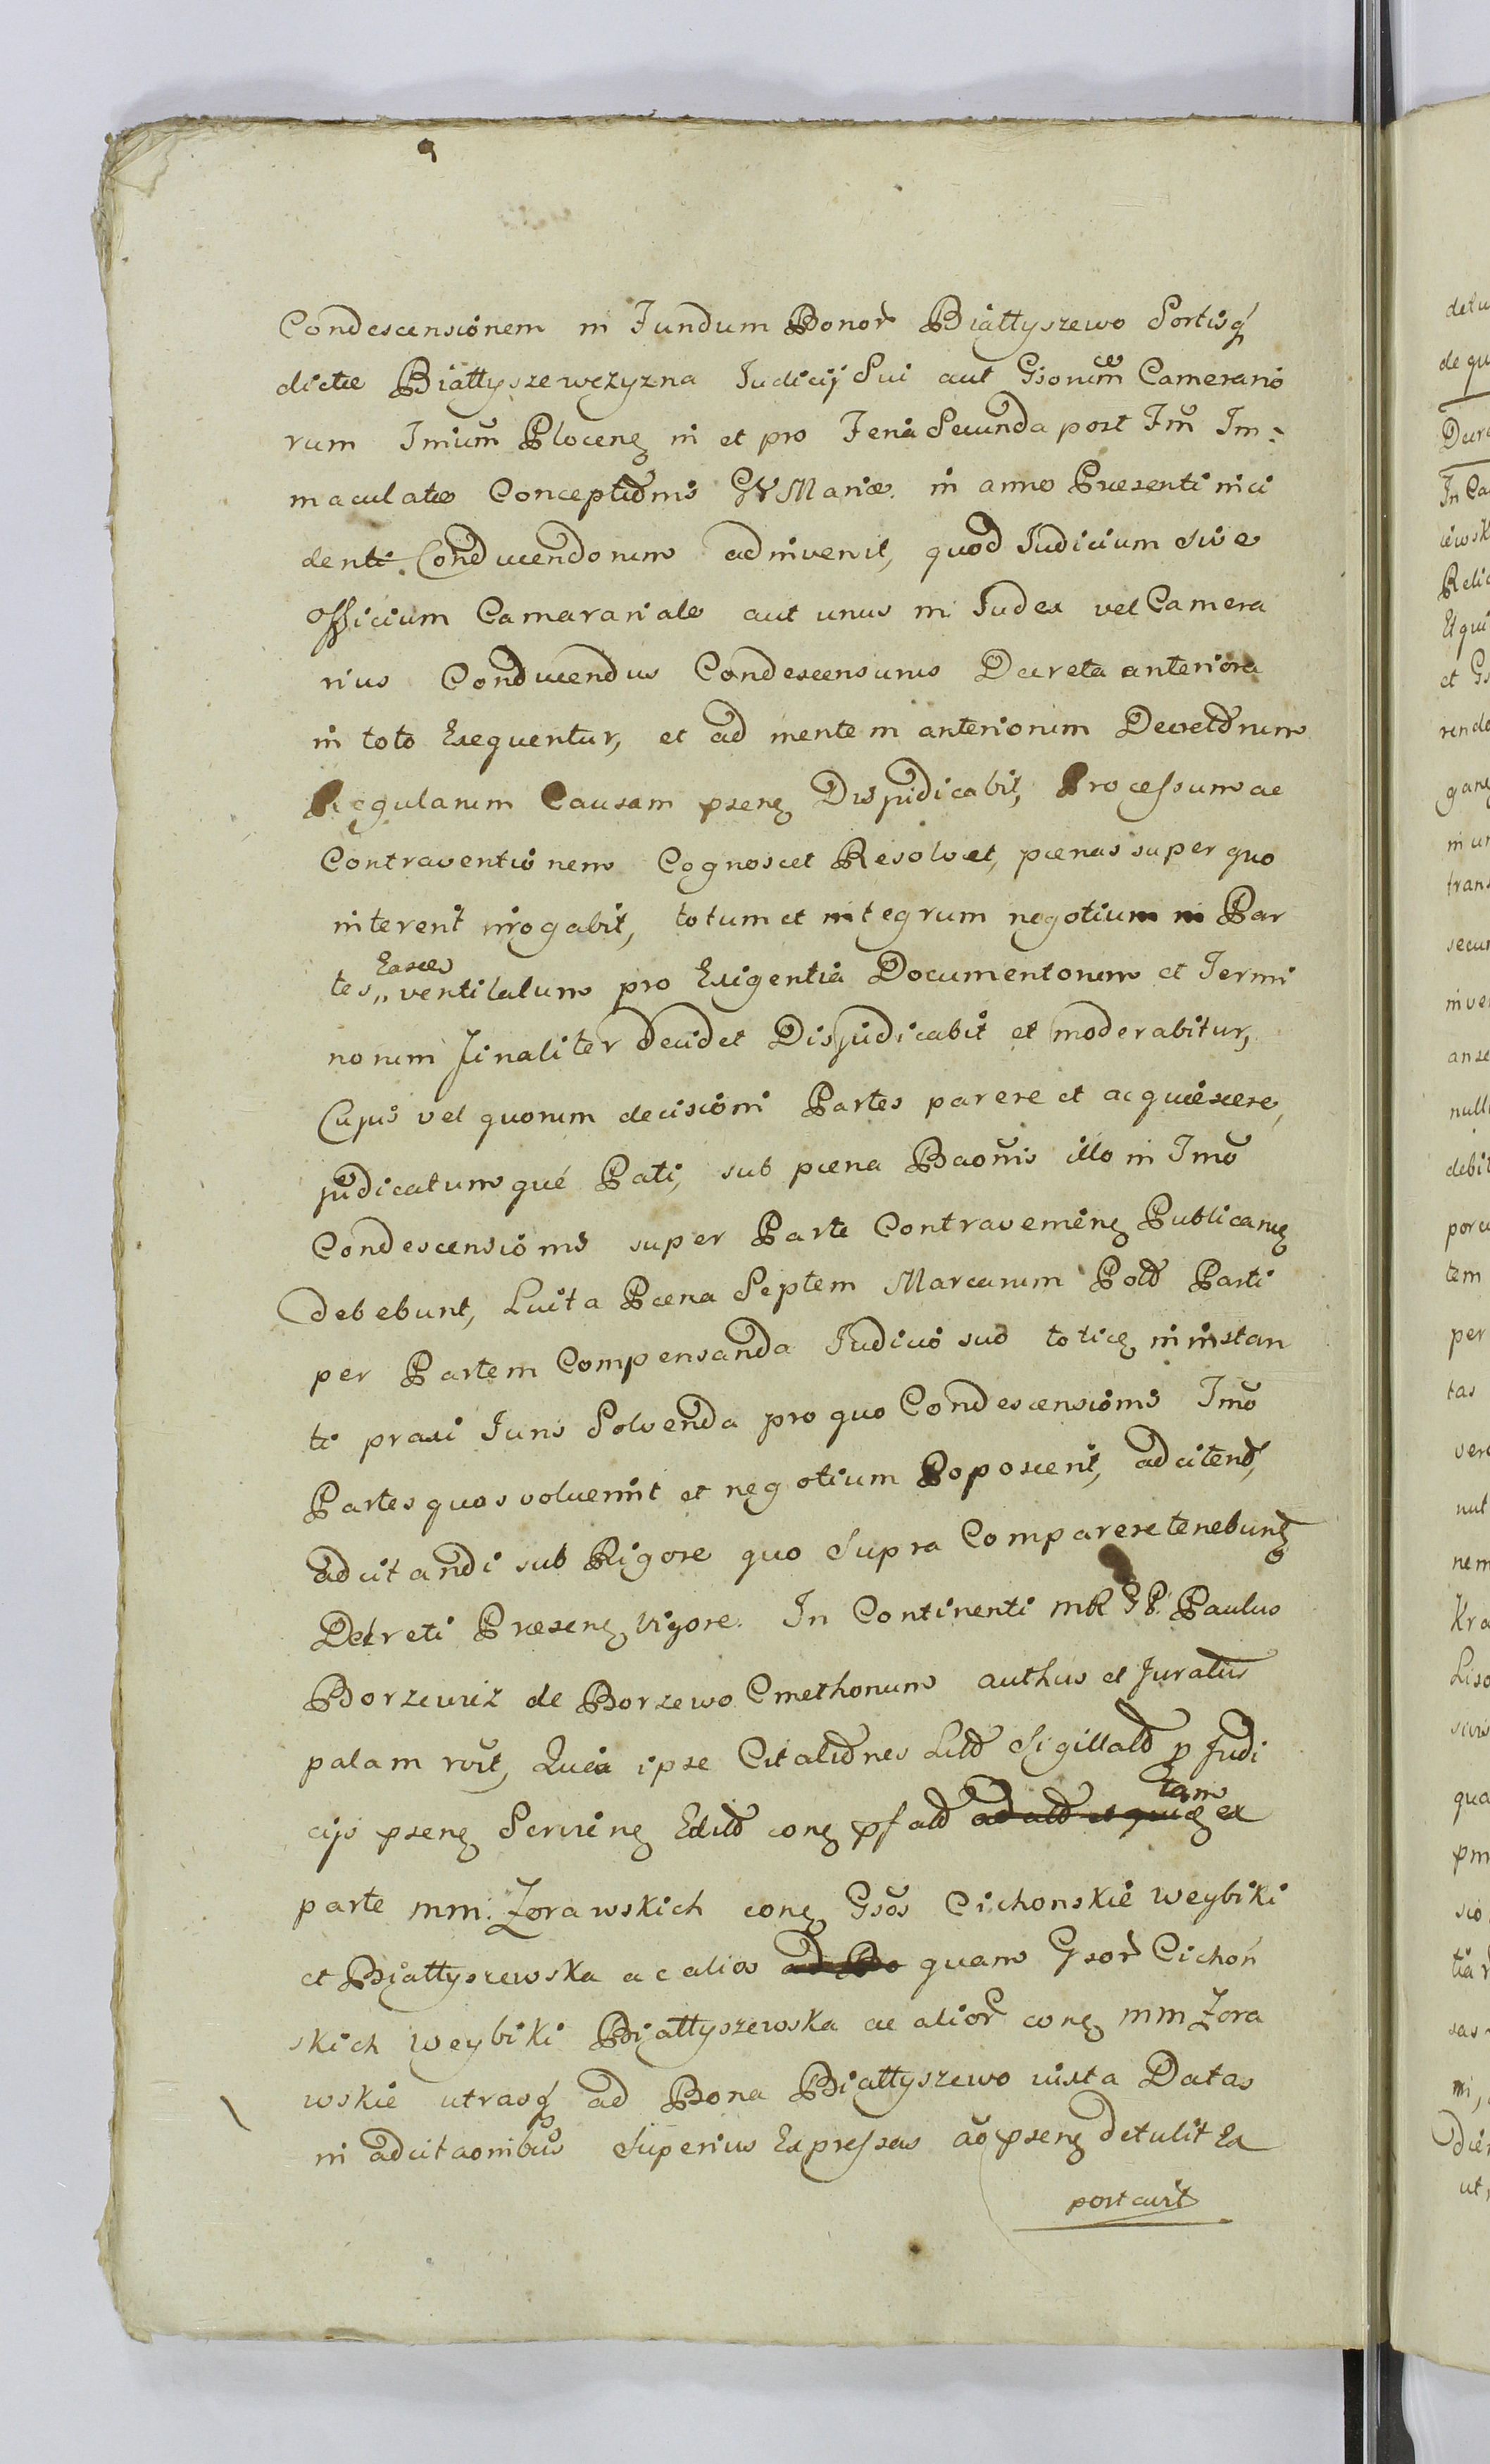 Condescensionem in Fundum Bonor̃ Białtyszewo Sortisq́
dictæ Białtyszewczyzna Judicij Sui aut Gsorum ce Camerario
rum Inium̃ Plocenʒ in et pro Feria Secunda post Fm̃ Im:
maculatæ Conceptiõnis GVMariæ in anno Præsenti inci
denti Conducendorum adinvenit, quod Judicium sive
Officium Camerariale aut unus in Judex vel Camera
rius Conducendus Condescensurus Decreta anteriora
in toto Exequentur, et ad mentem anteriorum Decretorum
Regularum Causam psenʒ Disjudicabit, Processum ac
Contraventionem Cognoscet Resolvet, pœnas super quo
intererit irrogabit, totum et integrum negotium in Par
tes,, Easce ventilatum pro Exigentia Documentorum et Termi
norum finaliter decidet Disjudicabit et moderabitur,
Cujus vel quorum decisioni Partes parere et acquiescere,
judicatumqué Pati, sub pœna Baoñis illo in Tmõ
Condescensionis super Parte Contravenienʒ Publicanʒ
debebunt, Luita Pœna Septem Marcarum Polõ Parti
per Partem Compensanda Judicio suo totieʒ in instan
ti praxi Juris Solvenda pro quo Condescensionis Tmõ
Partes quos voluerint et negotium Poposcerit, adcitend,
adcitandi sub Rigore quo supra Comparere tenebunʒ
Decreti Præsenʒ vigore. In Continenti MR GP. Paulus
Borzewiz de Borzewo Cmethonum authus et Juratus
palam roũt, Quia ipse Citatiõnes Litõ Sigillatõ p Judi
cijs psenʒ Servienʒ Editõ conʒ pſatõ tam ex
parte mm: Zorawskich conʒ Gsõs Cichonskie Weybiki
et Białtyszewska ac alios quam Gsor̃ Cichoń
skich Weybiki Białtyszewska ac alior̃ conʒ mm Zora
wskie utrasq́ ad Bona Białtyszewo iuxta Datas
in adcitaonibus superius Expressas aõ psenʒ detulit Ex
portavit